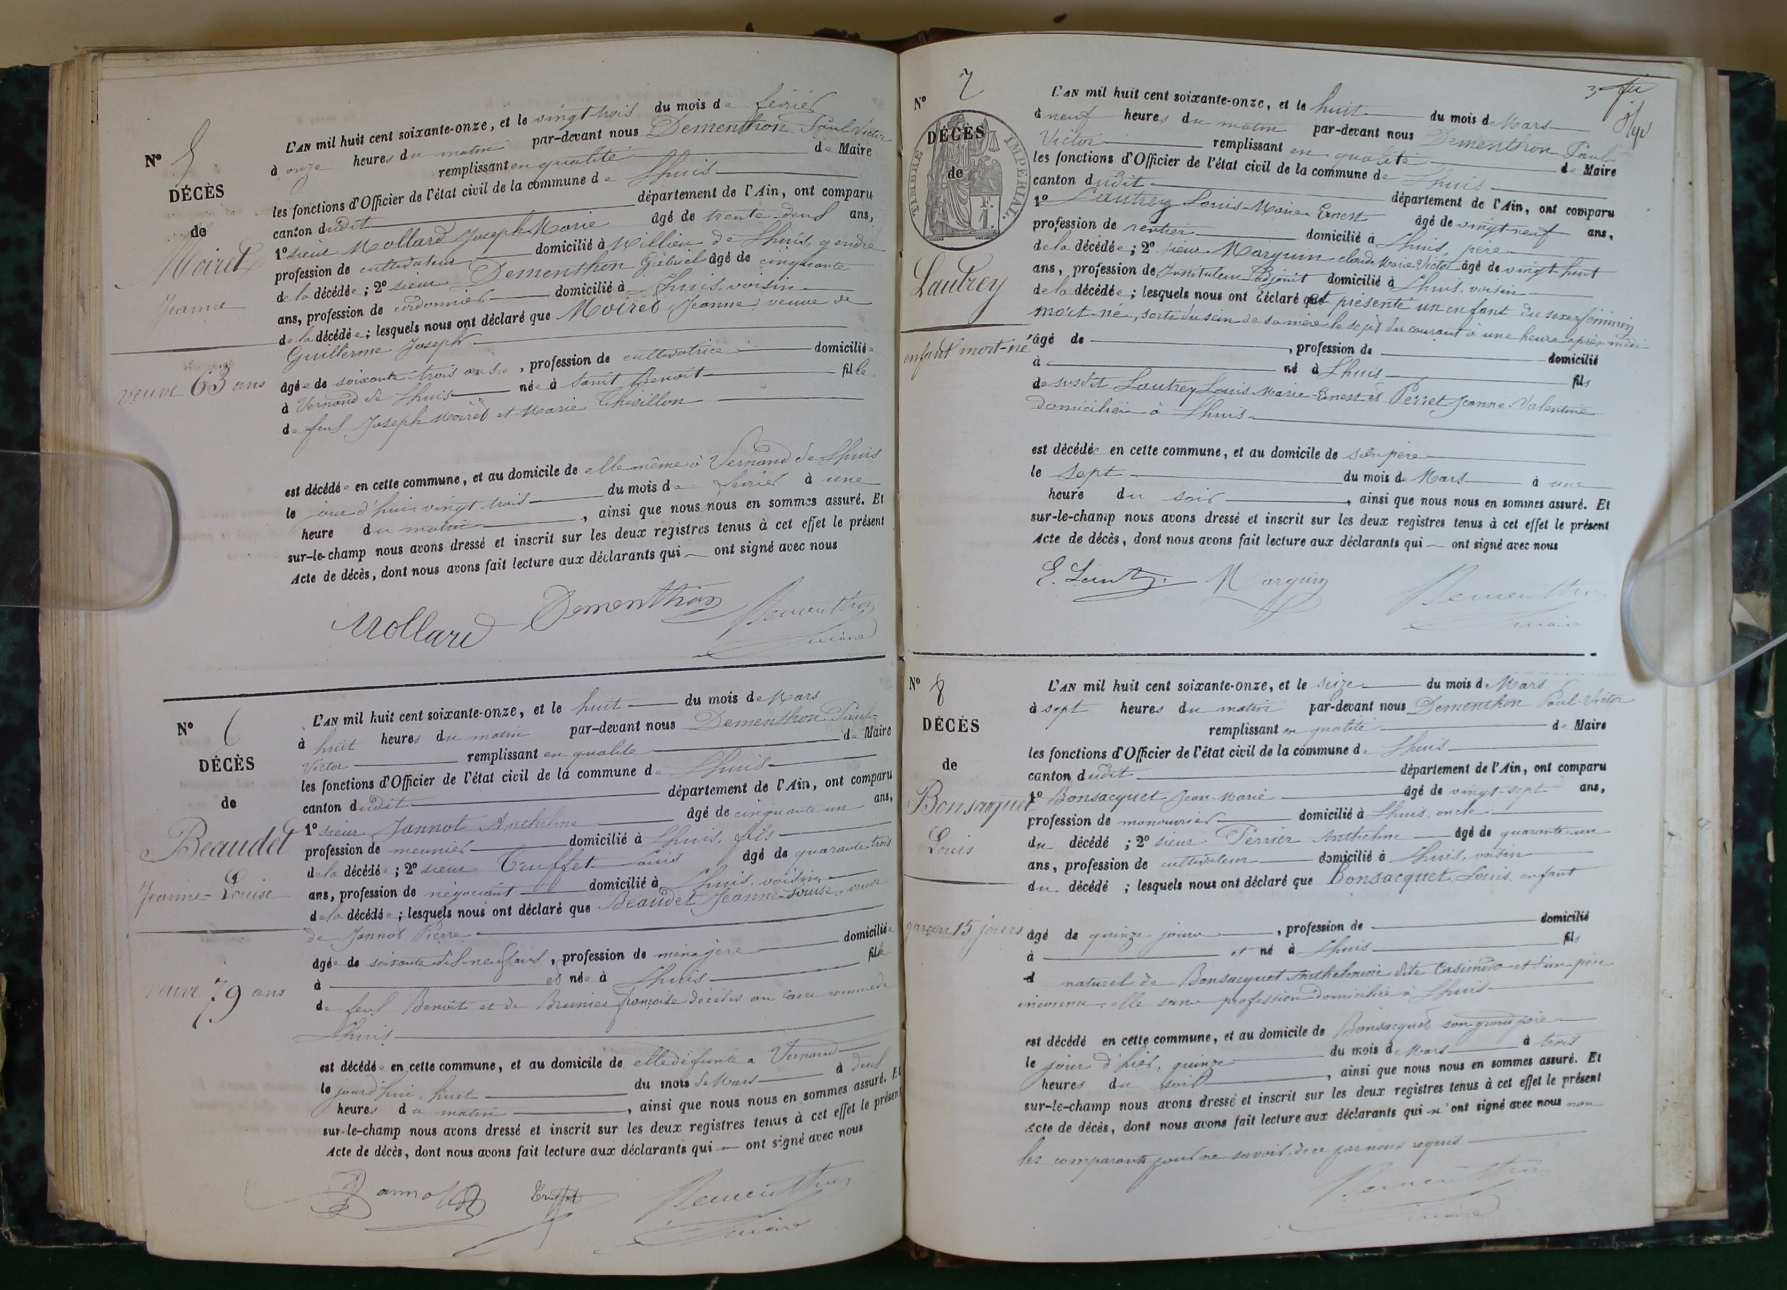 N° 5
DÉCÈS
de
Moiret
Jeanne
veuve 63 ans
L'AN mil huit cent soixante-onze, et le vingt-trois du mois de février
à onze heures du matin par-devant nous Dementhon Paul Victor
remplissant en qualité de Maire
les fonctions d'Officier de l'état civil de la commune de Lhuis
canton dudit département de l'Ain, ont comparu
1° sieur Mollard Joseph Marie âgé de trente-deux ans,
profession de cultivateur domicilié à Millieu de Lhuis, gendre
de la décédée; 2° sieur Dementhon âgé de cinquante
ans, profession de cordonnier domicilié à Lhuis, voisin
de la décédée; lesquels nous ont déclaré que Moiret Jeanne, veuve de
Guillerme Joseph
âgée de soixante-trois ans, profession de cultivatrice domiciliée
à Vernand de Lhuis née à Saint Benoit fille
de feu Joseph Moiret et Marie
est décédée en cette commune, et au domicile de elle même à Vernand de Lhuis
le jour d'hui vingt-trois du mois de février à une
heure du matin, ainsi que nous nous en sommes assuré. Et
sur-le-champ nous avons dressé et inscrit sur les deux registres tenus à cet effet le présent
Acte de décès, dont nous avons fait lecture aux déclarants qui ont signé avec nous
Mollard Dementhon Dementhon
maire
N° 6
DÉCÈS
de
Beaudet
Jeanne-Louise
veuve 79 ans
L'AN mil huit cent soixante-onze, et le huit du mois de Mars
à huit heures du matin par-devant nous Dementhon Paul-
Victor remplissant en qualité de Maire
les fonctions d'Officier de l'état civil de la commune de Lhuis
canton dudit département de l'Ain, ont comparu
1° sieur Jannot Anthelme âgé de cinquante un ans,
profession de meunier domicilié à Lhuis, fils
de la décédée; 2° sieur Truffet Louis âgé de quarante trois
ans, profession de négociant domicilié à Lhuis, voisin
de la décédée; lesquels nous ont déclaré que Beaudet Jeanne-Louise, veuve
de Jannot Pierre
âgée de soixante dix-neuf ans, profession de ménagère domiciliée
à et née à Lhuis fille
de feu Benoît et de Brunier françoise décédés au commune de
Lhuis
est décédée en cette commune, et au domicile de elle défunte à Vernand
le jourd'hui huit du mois de Mars à deux
heures du matin, ainsi que nous nous en sommes assuré. Et
sur-le-champ nous avons dressé et inscrit sur les deux registres tenus à cet effet le présent
Acte de décès, dont nous avons fait lecture aux déclarants qui ont signé avec nous
Jannot Truffet Dementhon
maire
N° 7
DÉCÈS
de
TIMBRE IMPÉRIAL
Lautrey
enfant mort-né
L'AN mil huit cent soixante-onze, et le huit du mois de Mars
à neuf heures du matin par-devant nous Dementhon Paul
Victor remplissant en qualité de Maire
les fonctions d'Officier de l'état civil de la commune de Lhuis
canton dudit département de l'Ain, ont comparu
1° Lautrey Louis-Marie-Ernest âgé de vingt-neuf ans,
profession de rentier domicilié à Lhuis, père
de la décédée; 2° sieur Marguin Claude Marie Victor âgé de vingt-huit
ans, profession de Instituteur Adjoint domicilié à Lhuis, voisin
de la décédée; lesquels nous ont déclaré et présenté un enfant du sexe féminin
mort-né, sorte du sein de sa mère le sept du courant à une heure après-midi
âgé de , profession de domicilié
à né à Lhuis fils
de susdit Lautrey Louis Marie-Ernest et Perret Jeanne-Valentine
domiciliés à Lhuis
est décédée en cette commune, et au domicile de son père
le sept du mois de Mars à une
heure du soir, ainsi que nous nous en sommes assuré. Et
sur-le-champ nous avons dressé et inscrit sur les deux registres tenus à cet effet le présent
Acte de décès, dont nous avons fait lecture aux déclarants qui ont signé avec nous
E. Lautrey Marguin Dementhon
maire
N° 8
DÉCÈS
de
Bonsacquet
Louis
garçon 15 jours
L'AN mil huit cent soixante-onze, et le seize du mois de Mars
à sept heures du matin par-devant nous Dementhon Paul Victor
remplissant en qualité de Maire
les fonctions d'Officier de l'état civil de la commune de Lhuis
canton dudit département de l'Ain, ont comparu
1° Bonsacquet Jean-Marie âgé de vingt-sept ans,
profession de manouvrier domicilié à Lhuis, oncle
du décédé; 2° sieur Perrier Anthelme âgé de quarante-un
ans, profession de cultivateur domicilié à Lhuis, voisin
du décédé; lesquels nous ont déclaré que Bonsacquet Louis, enfant
âgé de quinze jours, profession de domicilié
à et né à Lhuis fils
naturel de Bonsacquet Anthelmine dite Casimira et d'un père
inconnu, elle sans profession domiciliée à Lhuis
est décédé en cette commune, et au domicile de Bonsacquet son grand père
le jour d'hier, quinze du mois de Mars à trois
heures du soir, ainsi que nous nous en sommes assuré. Et
sur-le-champ nous avons dressé et inscrit sur les deux registres tenus à cet effet le présent
Acte de décès, dont nous avons fait lecture aux déclarants qui n'ont signé avec nous non
les comparants pour ne savoir, de ce par nous requis
Dementhon
maire